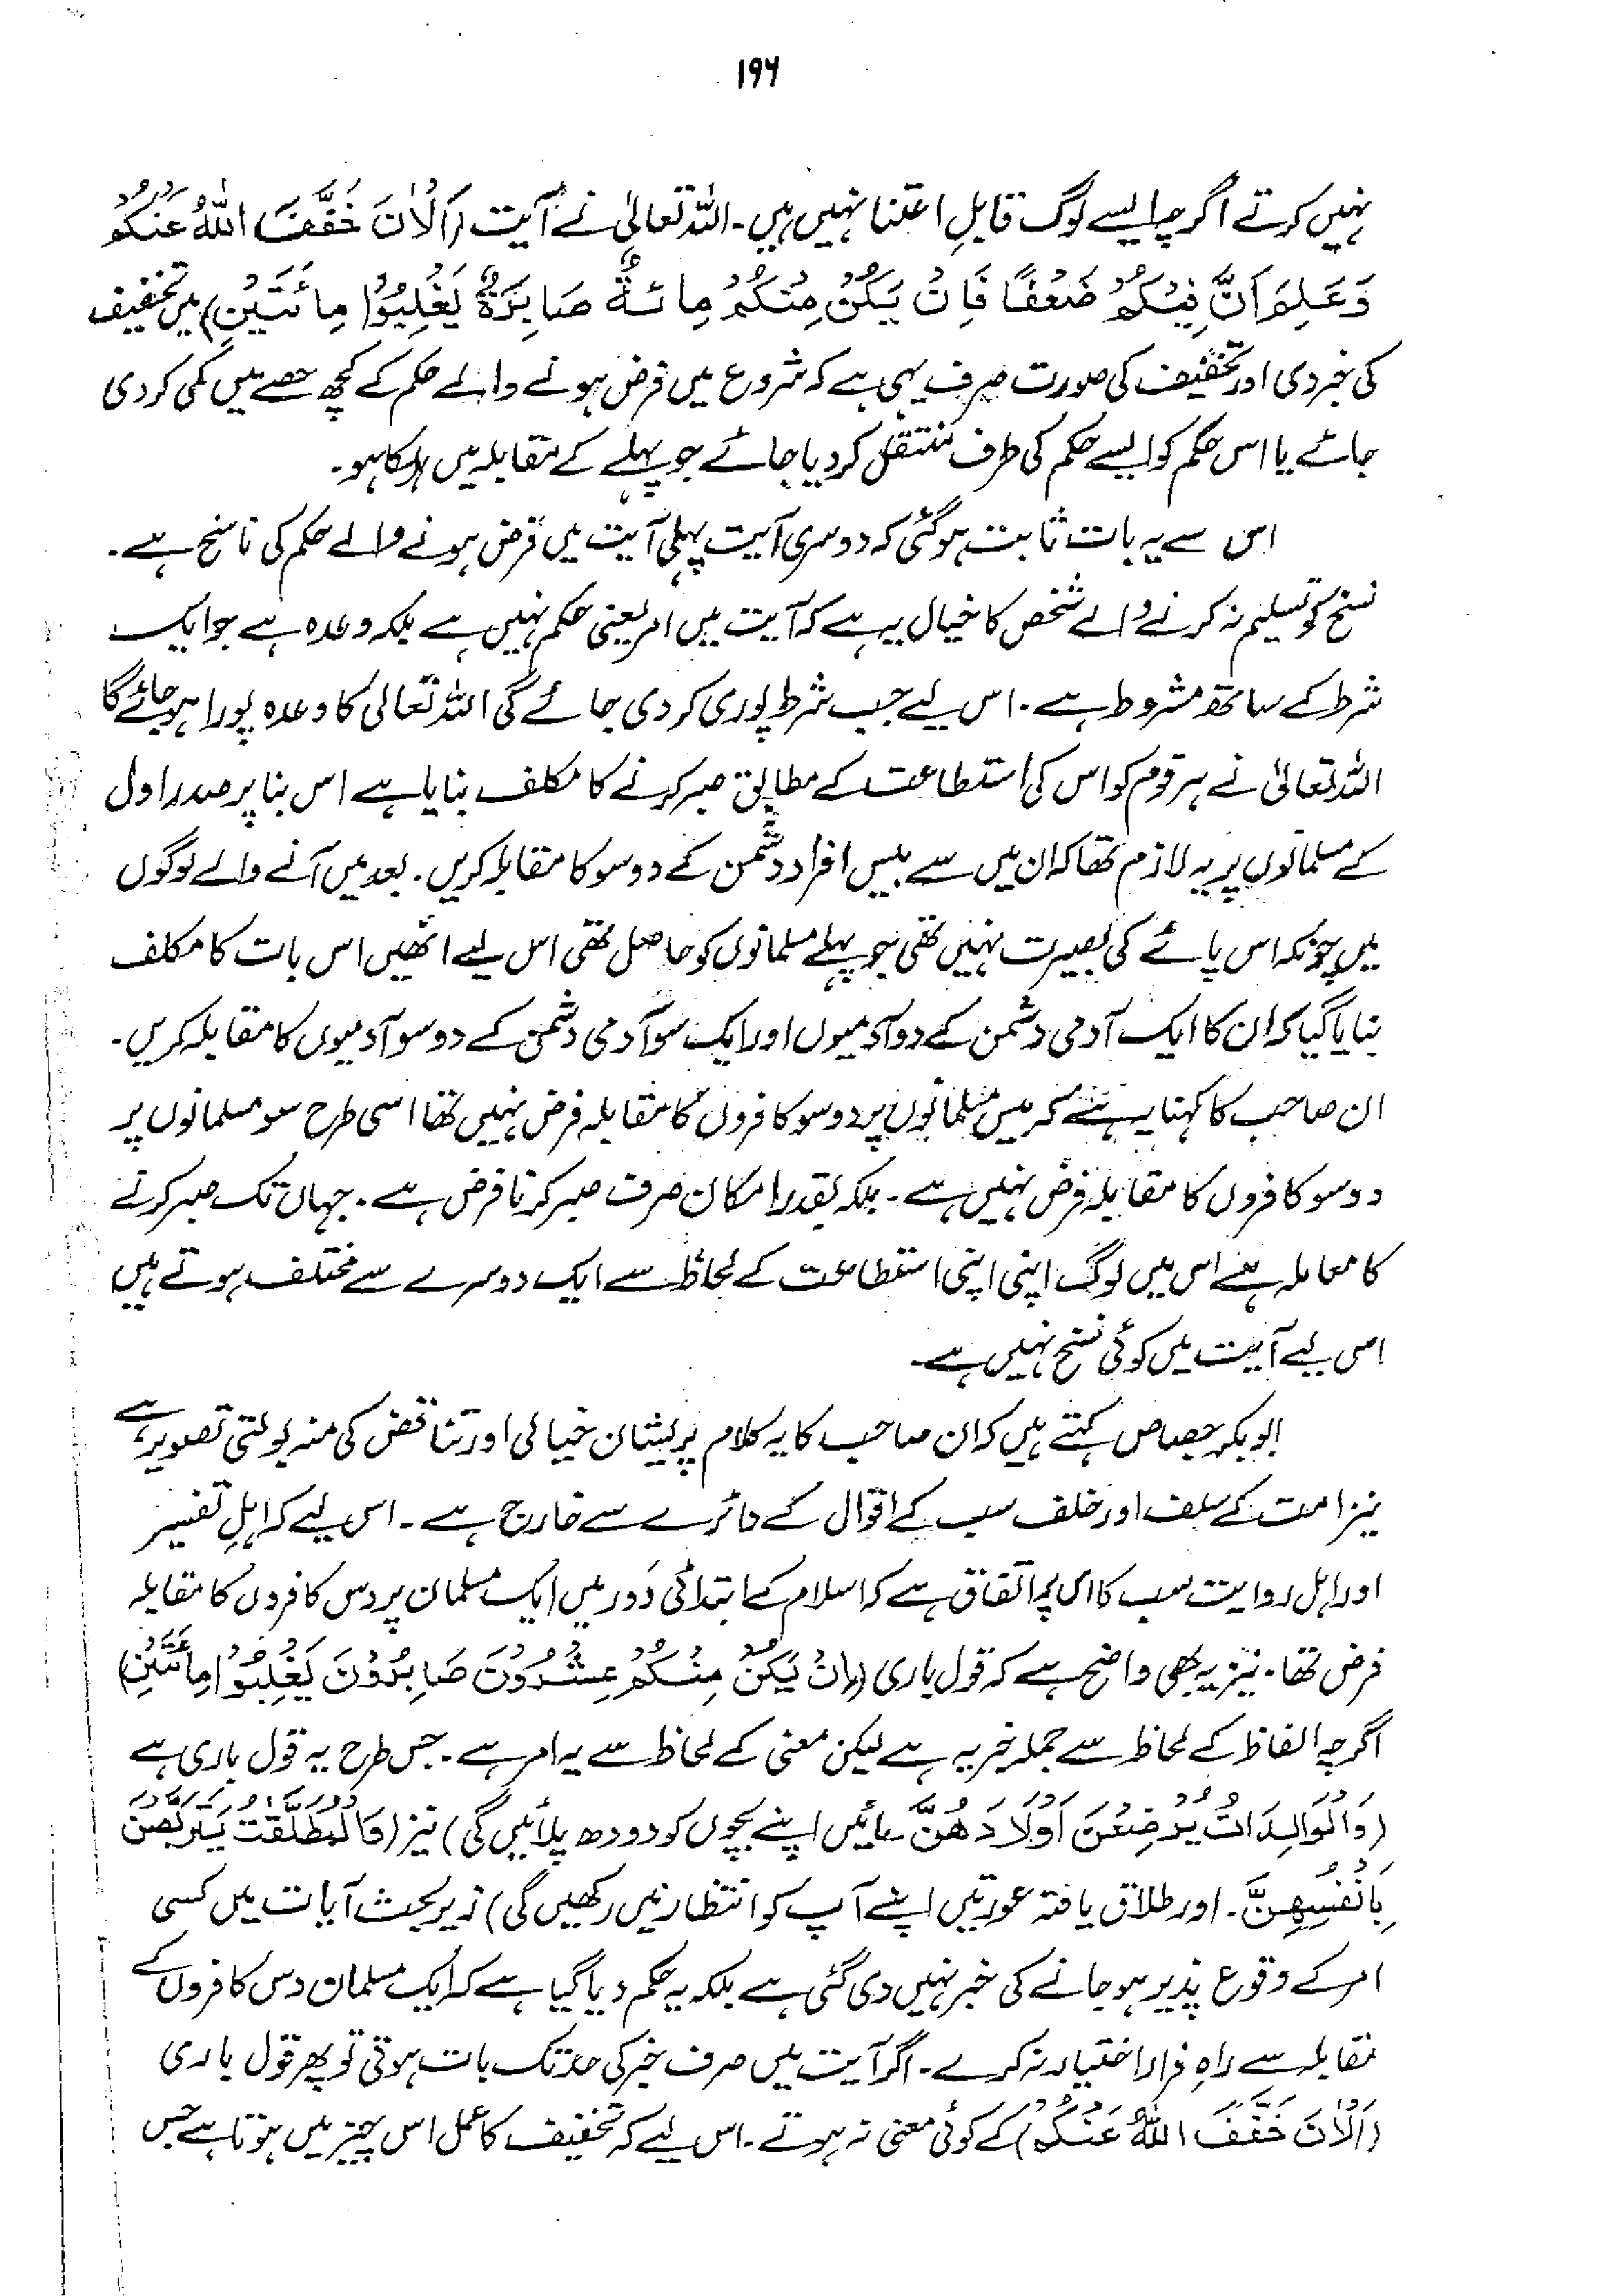 ۱۹۶
نہیں کرتے اگرچہ ایسے لوگ قابلِ اعتنا نہیں ہیں۔ اللہ تعالیٰ نے آیت (اَلْاٰنَ خَفَّفَ اللّٰهُ عَنْكُمْ
وَعَلِمَ اَنَّ فِيْكُمْ ضَعْفًا فَاِنْ يَّكُنْ مِنْكُمْ مِائَةٌ صَابِرَةٌ يَغْلِبُوْا مِائَتَيْنِ) میں تخفیف
کی خبر دی اور تخفیف کی صورت صرف یہی ہے کہ شروع میں فرض ہونے والے حکم کے کچھ حصے میں کمی کر دی
جائے یا اس حکم کو ایسے حکم کی طرف منتقل کر دیا جائے جو پہلے کے مقابلہ میں ہلکا ہو۔
اس سے یہ بات ثابت ہو گئی کہ دوسری آیت پہلی آیت میں فرض ہونے والے حکم کی ناسخ ہے۔
نسخ کو تسلیم نہ کرنے والے شخص کا خیال یہ ہے کہ آیت میں امر یعنی حکم نہیں ہے بلکہ وعدہ ہے جو ایک
شرط کے ساتھ مشروط ہے۔ اس لیے جب شرط پوری کر دی جائے گی اللہ تعالیٰ کا وعدہ پورا ہو جائے گا
اللہ تعالیٰ نے ہر قوم کو اس کی استطاعت کے مطابق صبر کرنے کا مکلف بنایا ہے اس بنا پر صدر اول
کے مسلمانوں پر یہ لازم تھا کہ ان میں سے بیس افراد دشمن کے دو سو کا مقابلہ کریں۔ بعد میں آنے والے لوگوں
میں چونکہ اس پائے کی بصیرت نہیں تھی جو پہلے مسلمانوں کو حاصل تھی اس لیے انھیں اس بات کا مکلف
بنایا گیا کہ ان کا ایک آدمی دشمن کے دو آدمیوں اور ایک سو آدمی دشمن کے دو سو آدمیوں کا مقابلہ کریں۔
ان صاحب کا کہنا یہ ہے کہ بیس مسلمانوں پر دو سو کافروں کا مقابلہ فرض نہیں تھا اسی طرح سو مسلمانوں پر
دو سو کافروں کا مقابلہ فرض نہیں ہے۔ بلکہ بقدر امکان صرف صبر کرنا فرض ہے۔ جہاں تک صبر کرنے
کا معاملہ ہے اس میں لوگ اپنی اپنی استطاعت کے لحاظ سے ایک دوسرے سے مختلف ہوتے ہیں
اسی لیے آیت میں کوئی نسخ نہیں ہے۔
ابوبکر جصاص کہتے ہیں کہ ان صاحب کا یہ کلام پریشان خیالی اور تناقض کی منہ بولتی تصویر ہے
نیز امت کے سلف اور خلف سب کے اقوال کے دائرے سے خارج ہے۔ اس لیے کہ اہلِ تفسیر
اور اہل روایت سب کا اس پر اتفاق ہے کہ اسلام کے ابتدائی دَور میں ایک مسلمان پر دس کافروں کا مقابلہ
فرض تھا۔ نیز یہ بھی واضح ہے کہ قول باری (اِنْ يَّكُنْ مِنْكُمْ عِشْرُوْنَ صَابِرُوْنَ يَغْلِبُوْا مِائَتَيْنِ)
اگرچہ الفاظ کے لحاظ سے جملہ خبریہ ہے لیکن معنی کے لحاظ سے یہ امر ہے۔ جس طرح یہ قول باری ہے
(وَالْوَالِدَاتُ يُرْضِعْنَ اَوْلَادَهُنَّ۔ مائیں اپنے بچوں کو دودھ پلائیں گی) نیز (وَالْمُطَلَّقٰتُ يَتَرَبَّصْنَ
بِاَنْفُسِهِنَّ۔ اور طلاق یافتہ عورتیں اپنے آپ کو انتظار میں رکھیں گی) زیر بحث آیات میں کسی
امر کے وقوع پذیر ہو جانے کی خبر نہیں دی گئی ہے بلکہ یہ حکم دیا گیا ہے کہ ایک مسلمان دس کافروں کے
مقابلہ سے راہِ فرار اختیار نہ کرے۔ اگر آیت میں صرف خبر کی حد تک بات ہوتی تو پھر قول باری
(اَلْاٰنَ خَفَّفَ اللّٰهُ عَنْكُمْ) کے کوئی معنی نہ ہوتے۔ اس لیے کہ تخفیف کا عمل اس چیز میں ہوتا ہے جس